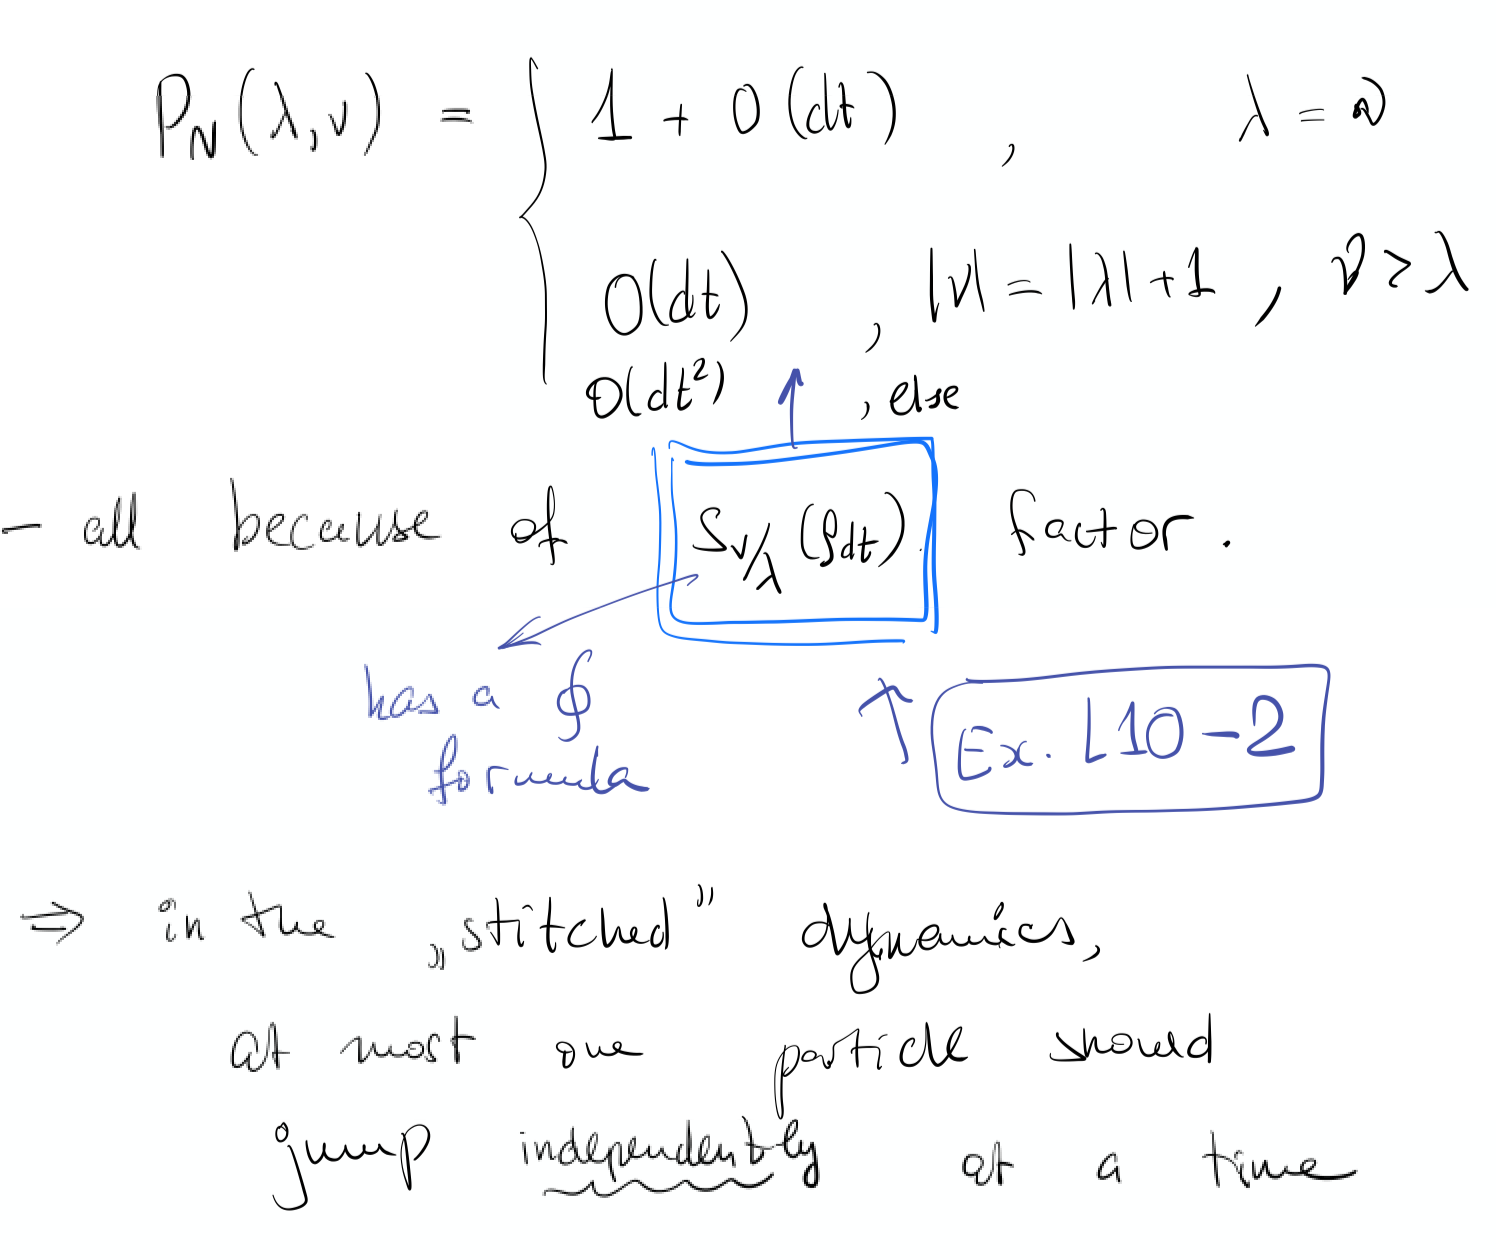 P_N(λ,ν) = { 1 + O(dt) , λ = ν
O(dt) , |ν| = |λ| + 1 , ν > λ
O(dt²) , else
- all because of S_{ν/λ}(ρ_{dt}) factor.
has a ∮
formula
Ex. L10-2
⇒ in the „stitched” dynamics,
at most one particle should
jump independently at a time